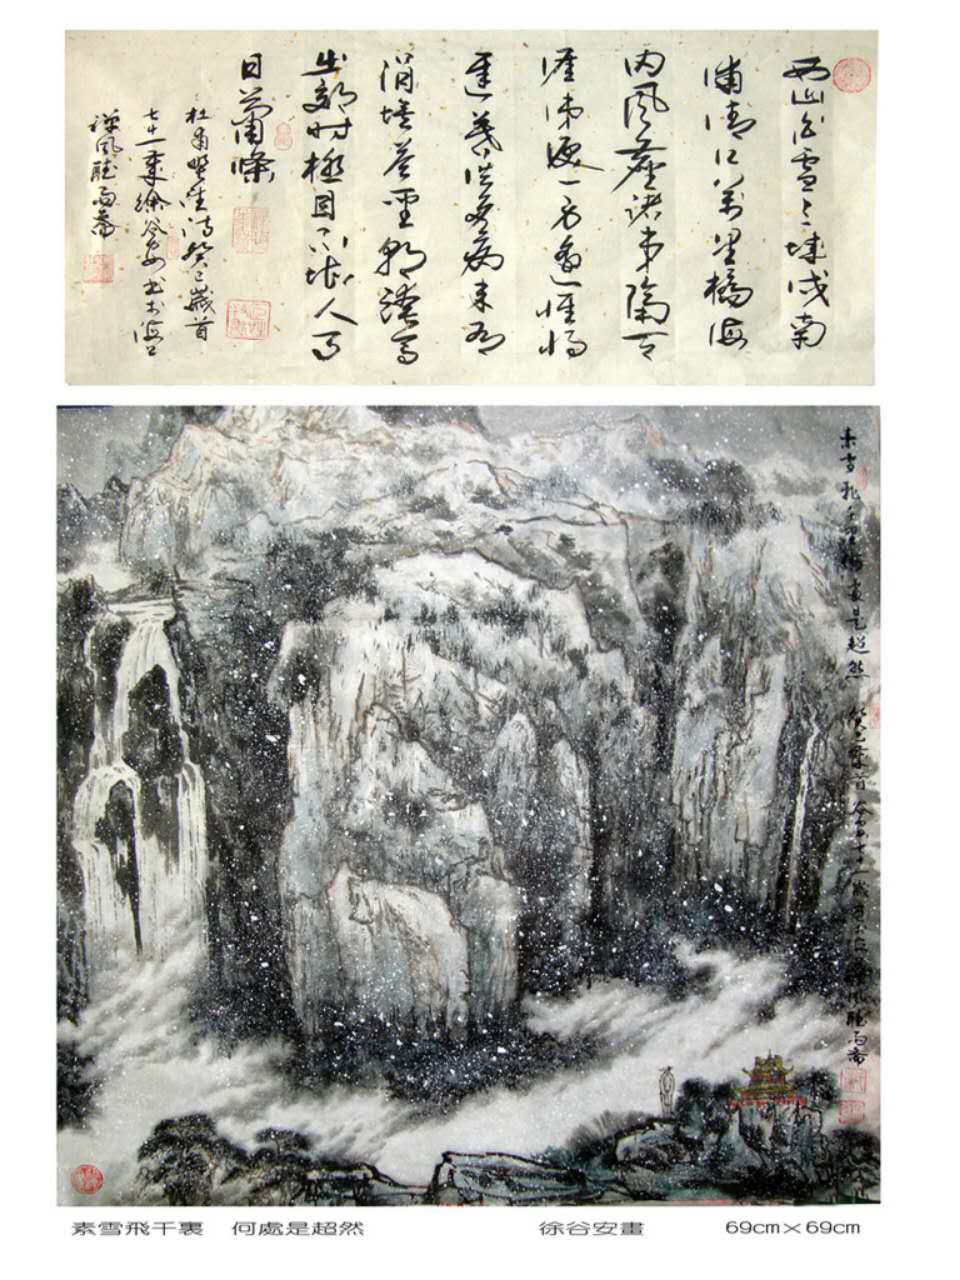 西山白雪三城戍南
浦清江萬里橋海
內風塵諸弟隔天
涯涕淚一身遙惟將
遲暮供多病未有
涓埃答聖朝跨馬
出郊時極目不堪人事
日蕭條
杜甫野望詩癸巳歲首
七十一叟徐谷安書於海口
禪風聽雨齋
素雪飛千裏何處是超然 癸巳歲首谷安七十一歲畫於海口禪風聽雨齋
素雪飛千裏 何處是超然 徐谷安畫 69cm×69cm